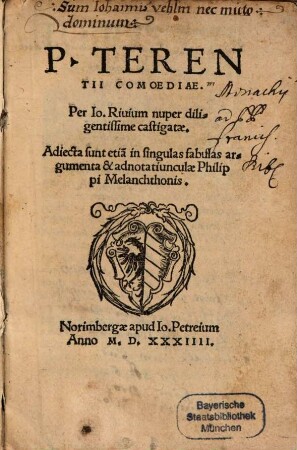 Sum Iohannis vehlin nec muto
dominum
P. TEREN
TII COMOEDIAE.
Monachij
ad PP
Francis.
Per Io. Riuium nuper dili-
gentissime castigatæ.
Adiecta sunt etiã in singulas fabulas ar
gumenta & adnotatiunculæ Philip
pi Melanchthonis.
Norimbergæ apud Io. Petreium
Anno M. D. XXXIIII.
Bayerische
Staatsbibliothek
München